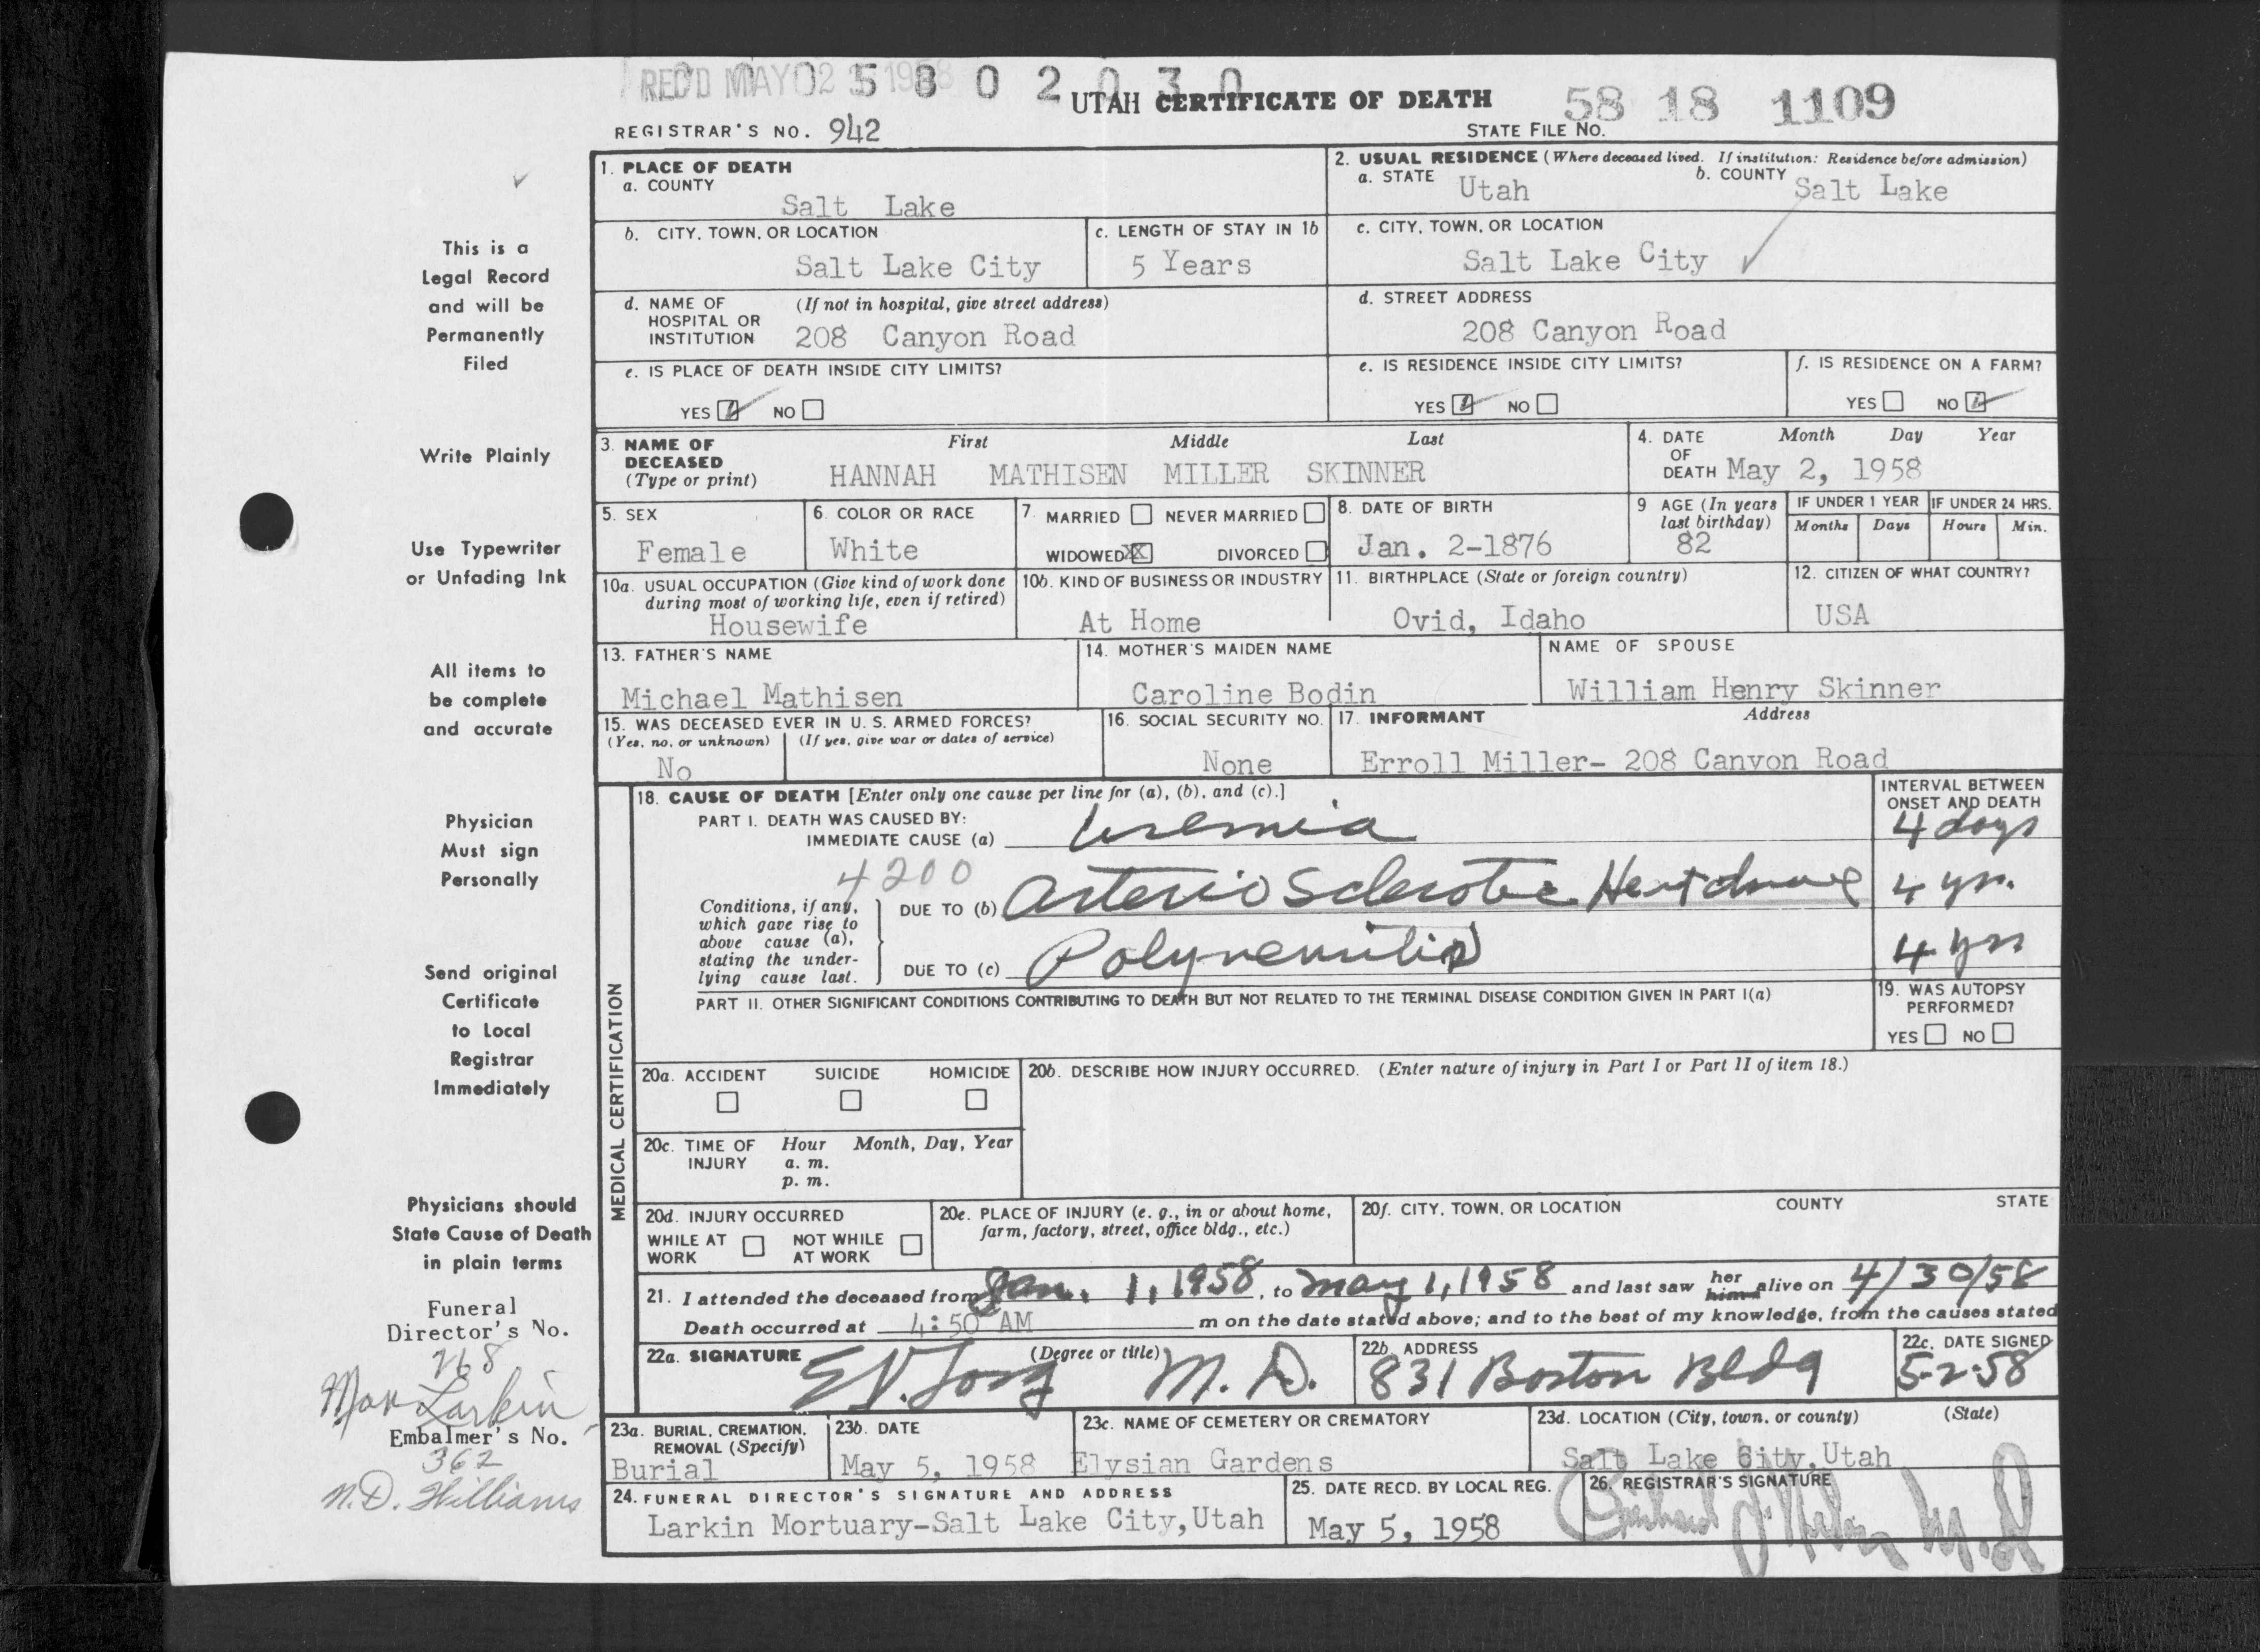 REC'D MAY 02 1958
5 8 0 2 0 3 0
UTAH CERTIFICATE OF DEATH
58 18 1109
REGISTRAR'S NO. 942
STATE FILE NO.
1. PLACE OF DEATH
a. COUNTY
Salt Lake
2. USUAL RESIDENCE (Where deceased lived. If institution: Residence before admission)
a. STATE Utah b. COUNTY Salt Lake
b. CITY, TOWN, OR LOCATION
Salt Lake City
c. LENGTH OF STAY IN 1b
5 Years
c. CITY, TOWN, OR LOCATION
Salt Lake City
d. NAME OF HOSPITAL OR INSTITUTION
(If not in hospital, give street address)
208 Canyon Road
d. STREET ADDRESS
208 Canyon Road
e. IS PLACE OF DEATH INSIDE CITY LIMITS?
YES NO
e. IS RESIDENCE INSIDE CITY LIMITS?
YES NO
f. IS RESIDENCE ON A FARM?
YES NO
3. NAME OF DECEASED (Type or print)
First Middle Last
HANNAH MATHISEN MILLER SKINNER
4. DATE OF DEATH
Month Day Year
May 2, 1958
5. SEX
Female
6. COLOR OR RACE
White
7. MARRIED NEVER MARRIED
WIDOWED XX DIVORCED
8. DATE OF BIRTH
Jan. 2-1876
9 AGE (In years last birthday)
82
IF UNDER 1 YEAR
Months Days
IF UNDER 24 HRS.
Hours Min.
10a. USUAL OCCUPATION (Give kind of work done during most of working life, even if retired)
Housewife
10b. KIND OF BUSINESS OR INDUSTRY
At Home
11. BIRTHPLACE (State or foreign country)
Ovid, Idaho
12. CITIZEN OF WHAT COUNTRY?
USA
13. FATHER'S NAME
Michael Mathisen
14. MOTHER'S MAIDEN NAME
Caroline Bodin
NAME OF SPOUSE
William Henry Skinner
15. WAS DECEASED EVER IN U. S. ARMED FORCES?
(Yes, no, or unknown) (If yes, give war or dates of service)
No
16. SOCIAL SECURITY NO.
None
17. INFORMANT Address
Erroll Miller- 208 Canyon Road
MEDICAL CERTIFICATION
18. CAUSE OF DEATH [Enter only one cause per line for (a), (b), and (c).]
INTERVAL BETWEEN ONSET AND DEATH
PART I. DEATH WAS CAUSED BY:
IMMEDIATE CAUSE (a) Uremia 4 days
4200
Conditions, if any, which gave rise to above cause (a), stating the underlying cause last.
DUE TO (b) Arterio Sclerotic Heart disease 4 yrs.
DUE TO (c) Polyneuritis 4 yrs
PART II. OTHER SIGNIFICANT CONDITIONS CONTRIBUTING TO DEATH BUT NOT RELATED TO THE TERMINAL DISEASE CONDITION GIVEN IN PART I(a)
19. WAS AUTOPSY PERFORMED?
YES NO
20a. ACCIDENT SUICIDE HOMICIDE
20b. DESCRIBE HOW INJURY OCCURRED. (Enter nature of injury in Part I or Part II of item 18.)
20c. TIME OF INJURY
Hour Month, Day, Year
a. m.
p. m.
20d. INJURY OCCURRED
WHILE AT WORK NOT WHILE AT WORK
20e. PLACE OF INJURY (e. g., in or about home, farm, factory, street, office bldg., etc.)
20f. CITY, TOWN, OR LOCATION COUNTY STATE
21. I attended the deceased from Jan. 1, 1958, to May 1, 1958 and last saw her him alive on 4/30/58
Death occurred at 4:50 AM m on the date stated above; and to the best of my knowledge, from the causes stated
22a. SIGNATURE (Degree or title)
M. D.
22b. ADDRESS
831 Boston Bldg
22c. DATE SIGNED
5-2-58
23a. BURIAL, CREMATION, REMOVAL (Specify)
Burial
23b. DATE
May 5, 1958
23c. NAME OF CEMETERY OR CREMATORY
Elysian Gardens
23d. LOCATION (City, town, or county) (State)
Salt Lake City, Utah
24. FUNERAL DIRECTOR'S SIGNATURE AND ADDRESS
Larkin Mortuary-Salt Lake City, Utah
25. DATE RECD. BY LOCAL REG.
May 5, 1958
26. REGISTRAR'S SIGNATURE
This is a
Legal Record
and will be
Permanently
Filed
Write Plainly
Use Typewriter
or Unfading Ink
All items to
be complete
and accurate
Physician
Must sign
Personally
Send original
Certificate
to Local
Registrar
Immediately
Physicians should
State Cause of Death
in plain terms
Funeral
Director's No.
268
Max Larkin
Embalmer's No.
362
N.D. Williams